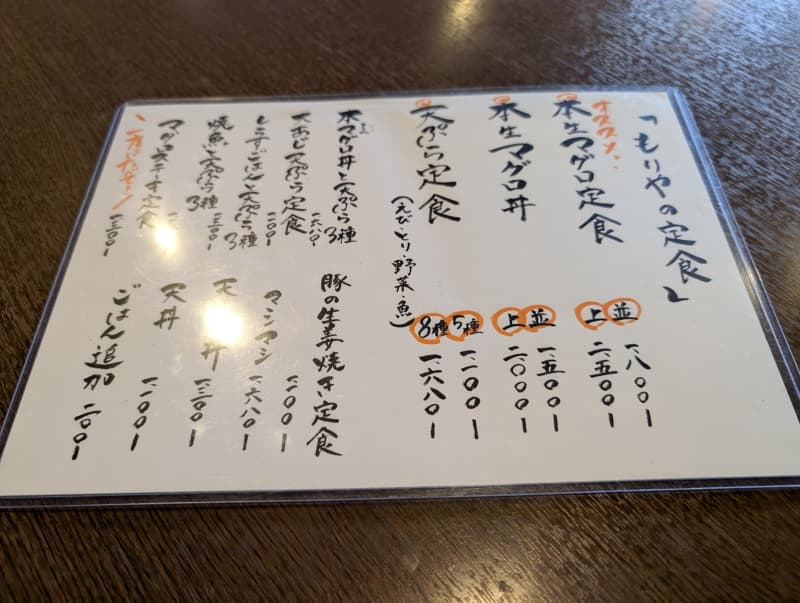 「もりやの定食」
オススメ!
本生マグロ定食
並 一、八〇〇ー
上 二、五〇〇ー
本生マグロ丼
並 一、五〇〇ー
上 二、〇〇〇ー
天ぷら定食
(えび・とり・野菜・魚)
5種 一、二〇〇ー
8種 一、六八〇ー
本マグロ丼と天ぷら3種
一、六八〇ー
大あじ天ぷら定食
一、二〇〇ー
しらすごはんと天ぷら3種
一、三〇〇ー
焼魚と天ぷら3種
マグロステーキ定食
一、三〇〇ー
豚の生姜焼き定食
一、二〇〇ー
マシマシ
一、六八〇ー
丼
一、三〇〇ー
天丼
一、二〇〇ー
ごはん追加
二〇〇ー